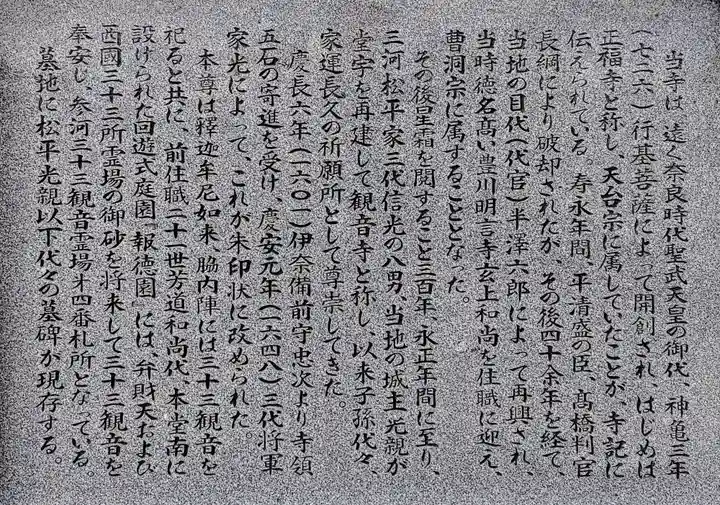 当寺は、遠く奈良時代聖武天皇の御代、神亀三年
(七二六)行基菩薩によって開創され、はじめは
正福寺と称し、天台宗に属していたことが、寺記に
伝えられている。寿永年間、平清盛の臣、髙橋判官
長綱により破却されたが、その後四十余年を経て、
当地の目代(代官)半澤六郎によって再興され、
当時徳名髙い豊川明言寺玄上和尚を住職に迎え、
曹洞宗に属することとなった。
その後星霜を閲すること三百年、永正年間に至り、
三河松平家三代信光の八男、当地の城主光親が
堂宇を再建して観音寺と称し、以来子孫代々、
家運長久の祈願所として尊崇してきた。
慶長六年(一六〇一)伊奈備前守忠次より寺領
五石の寄進を受け、慶安元年(一六四八)三代将軍
家光によって、これが朱印状に改められた。
本尊は釋迦牟尼如来、脇内陣には三十三観音を
祀ると共に、前住職二十一世芳道和尚代、本堂南に
設けられた回遊式庭園「報徳園」には、弁財天および
西國三十三所霊場の御砂を将来して三十三観音を
奉安し、参河三十三観音霊場才四番札所となっている。
墓地に松平光親以下代々の墓碑が現存する。